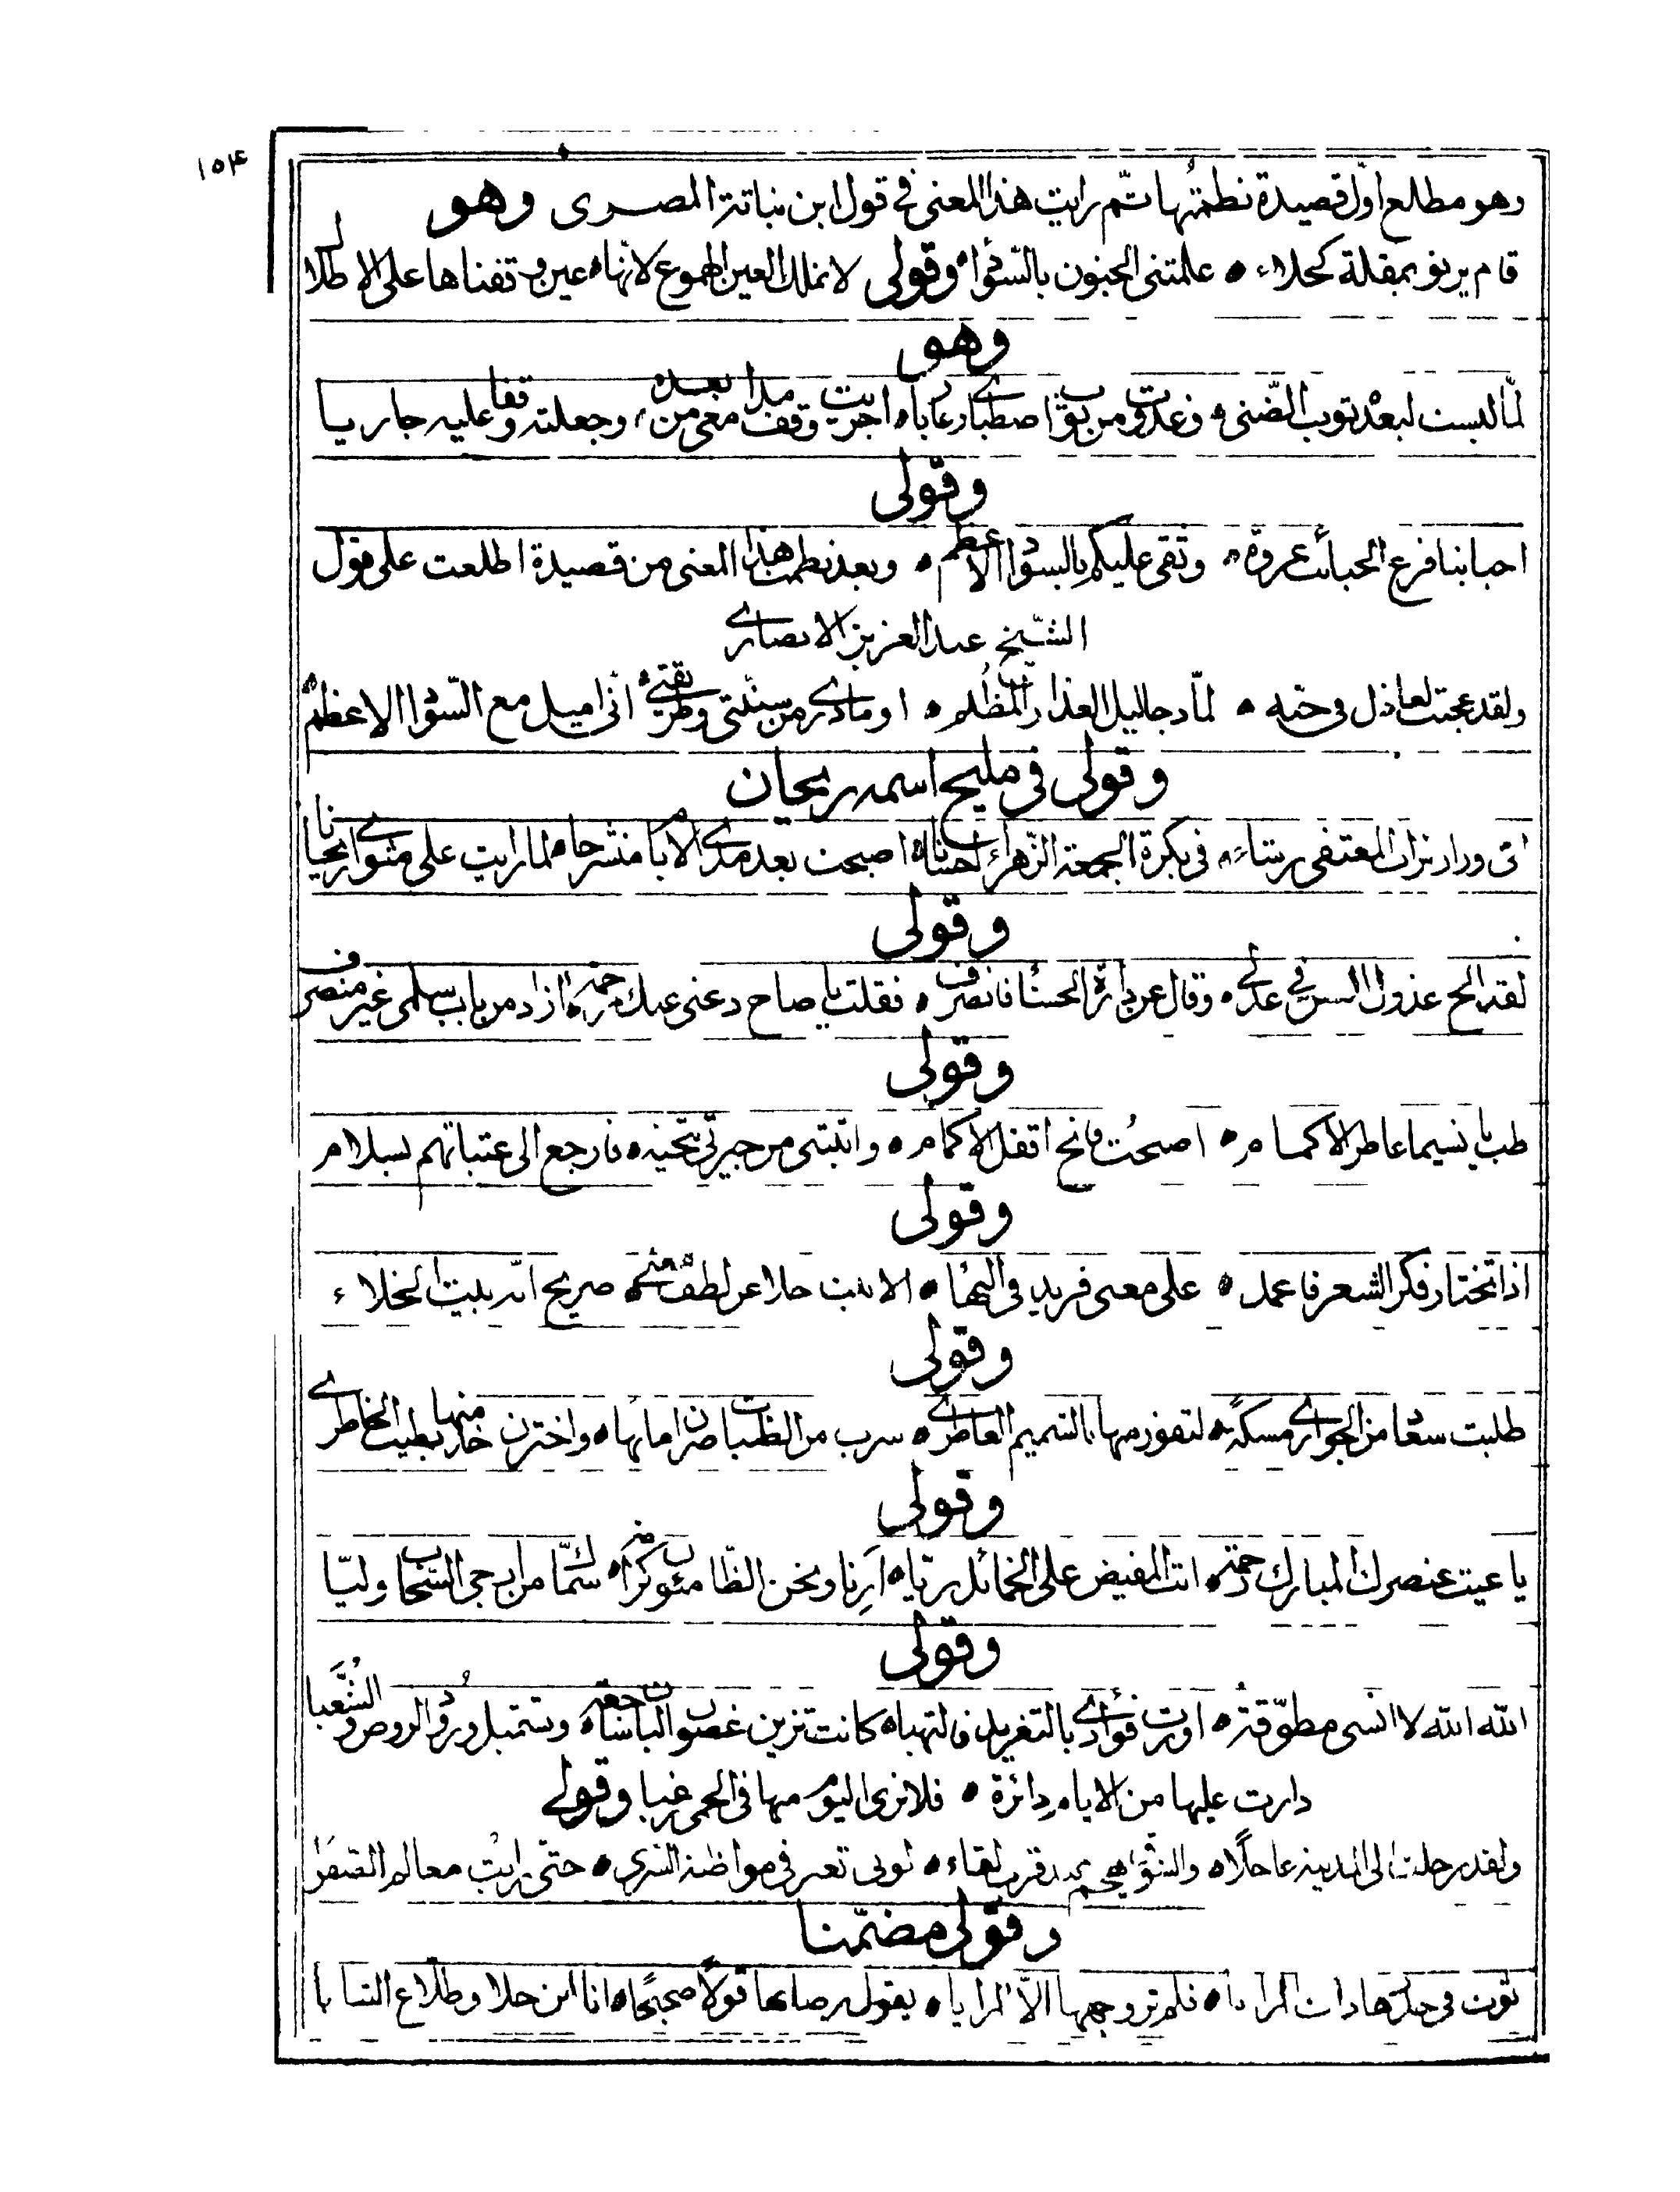 ١٥٤
وهو مطلع اوّل قصيدة نظمتها ثم رايت هذا المعنى في قول ابن نباتة المصرى وهو
قام يرنو بمقلة كحلاء ه علمتنى الجنون بالسّوداء ه وقولى لا تملك العين الهموع لانهاه عين وقفناها على الاطلال
وهو
لمّا لبست لبعده ثوب الضّنى ه وغدوت من ثوب اصطبارى عاريا ه اجريت وقف مدامعى من بعده ه وجعلته وقفا عليه جاريا
وقولى
احبابنا فرع الحبائب عروة ه وتقى عليكم بالسواد الاعظم ه وبعد نظمت هذا المعنى من قصيدة اطلعت على قول
الشيخ عبد العزيز الانصارى
ولقد عجبت لعاذل فى حبّه ه لمّا دجا ليل العذار المظلم ه اوما درى من سنّتى وطريقتى ه انّى اميل مع السّواد الاعظم
وقولى فى مليح اسمه ريحان
فى بكرة الجمعة الزّهراء احيانا ه اصبحت بعد مدى الايام منشرحا لما رايت على مثواى ريحانا
وقولى
لقد الح عذول السر فى عذلى ه وقال عن دارة الحسنا فانصرف ه فقلت يا صاح دعنى عنك من باب سلمى غير منصرف
وقولى
طب يا نسيما عاطر الاكمام ه اصبحت فانح اقفل الاكمام ه واتيتنى من جيرتى بتحية ه فارجع الى عتباتهم بسلام
وقولى
اذا تختار فكر الشعر فاعمد ه على معنى فريد فى البهاء ه الا بيت خلا عن لطف معنى ه صريح انه بيت الخلاء
وقولى
طلبت سعاد من الجوارى مسكة ه لتفوز منها بالشميم العاطرى ه سرب من الظبيات صرن امائها ه واخترن منها خالد بطيب الخاطرى
وقولى
يا غيث عنصرك المبارك رحمة ه انت المفيض على الخمائل ريّا ه ارنا ونحن الظامئون كرامة ه سمّاك من ارجى السّحاب وليّا
وقولى
الله الله لا انسى مطوّقة ه اورت فؤادى بالتغريد فالتهبا ه كانت تزين غصون البان ساجعة ه وتستميل ورود الروض والشّعبا
دارت عليها من الايام دائرة ه فلا نرى اليوم منها فى الحمى زغبا وقولى
ولقد رحلت الى المدينة عاجلا ه والشوق يحكم عند قرب لقاء ه ثوبى تعبر فى مواطئة السرى ه حتى رايت معالم
وقولى مضمّنا
ثوت فى حيّكم ذات المرايا ه فلم تر وجهها الّا المرايا ه يقول رضابها قولا صحيحا ه انا ابن جلا وطلّاع الثنايا